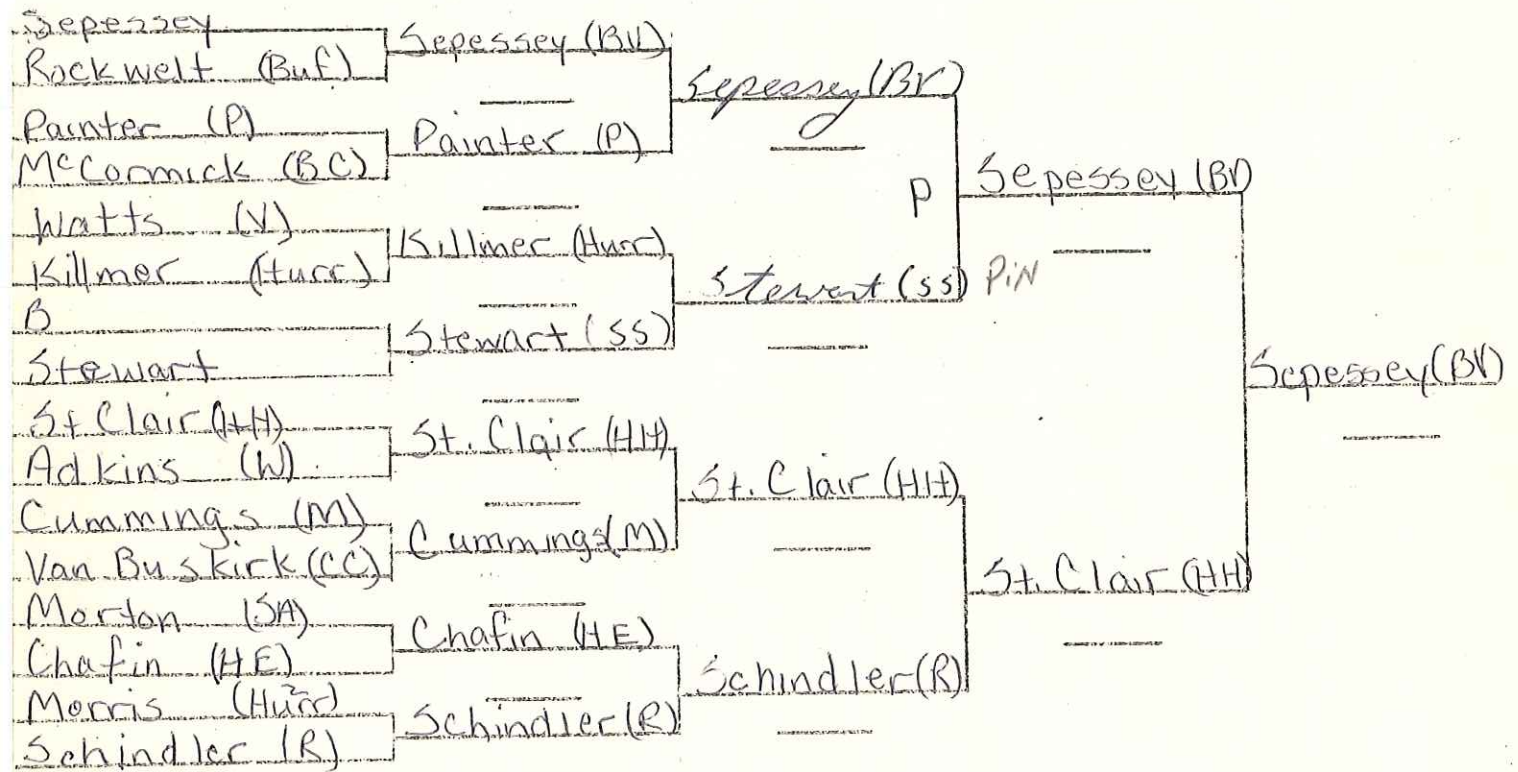 Sepessey
Rockwelt (Buf)
Painter (P)
McCormick (BC)
Watts (V)
Killmer (Hurr)
B
Stewart
St Clair (HH)
Adkins (W)
Cummings (M)
Van Buskirk (CC)
Morton (SA)
Chafin (HE)
Morris (Hurr) 2
Schindler (R)
Sepessey (BV)
Painter (P)
Killmer (Hurr)
Stewart (SS)
St. Clair (HH)
Cummings (M)
Chafin (HE)
Schindler (R)
Sepessey (BV)
Stewart (SS)
St. Clair (HH)
Schindler (R)
P
PiN
Sepessey (BV)
St. Clair (HH)
Sepessey (BV)